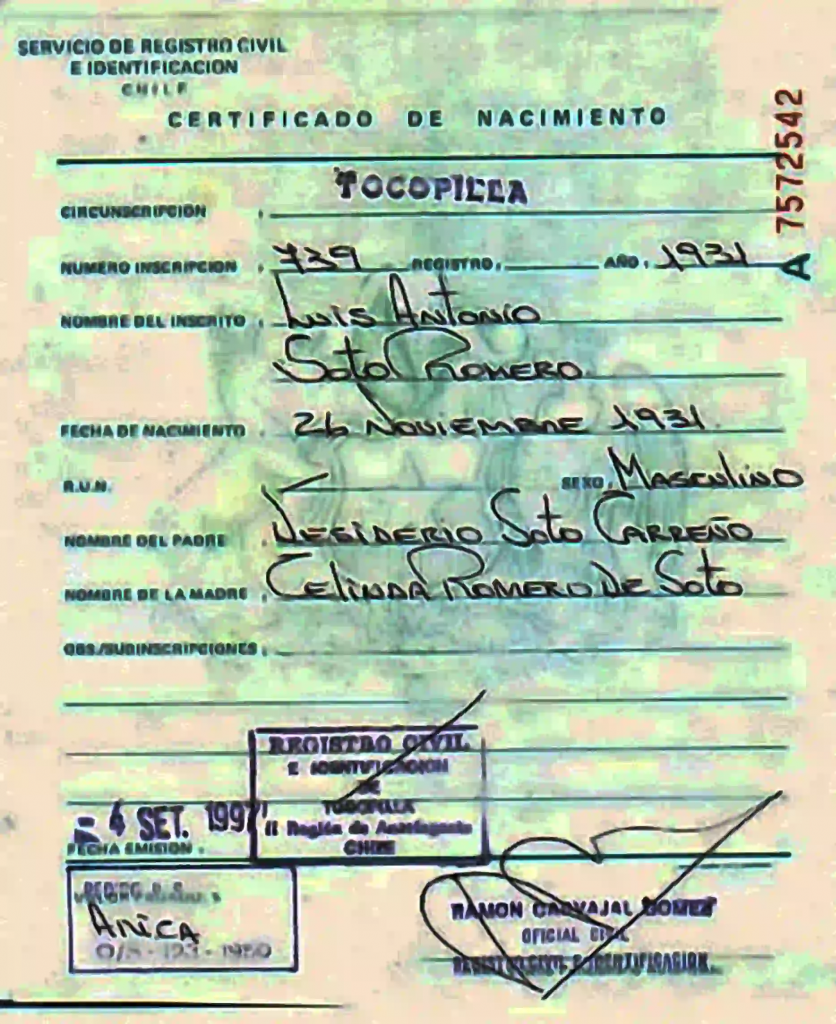 SERVICIO DE REGISTRO CIVIL
E IDENTIFICACION
CHILE
CERTIFICADO DE NACIMIENTO
A 7572542
TOCOPILLA
CIRCUNSCRIPCIÓN :
NUMERO INSCRIPCION : 739 REGISTRO: AÑO: 1931
NOMBRE DEL INSCRITO : Luis Antonio
Soto Romero
FECHA DE NACIMIENTO : 26 Noviembre 1931
R.U.N. SEXO: Masculino
NOMBRE DEL PADRE : Desiderio Soto Carreño
NOMBRE DE LA MADRE : Celinda Romero De Soto
OBS./SUBINSCRIPCIONES :
REGISTRO CIVIL
E IDENTIFICACION
DE
TOCOPILLA
II Región de Antofagasta
CHILE
4 SET. 1997
FECHA EMISION :
Arica
RAMON CARVAJAL GOMEZ
OFICIAL CIVIL
REGISTRO CIVIL E IDENTIFICACION